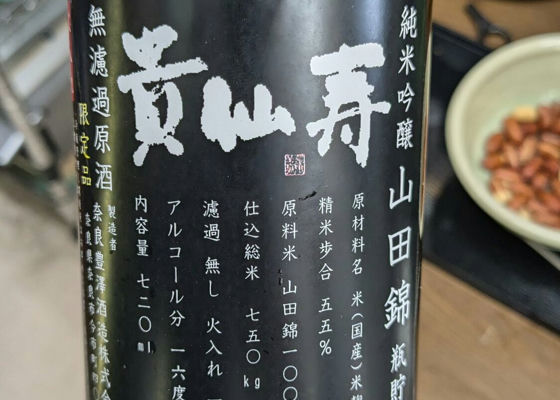 純米吟醸 山田錦 瓶貯
貴仙寿
原材料名 米(国産)米麹
精米歩合 五五%
原料米 山田錦一〇〇
仕込総米 七五〇kg
濾過 無し 火入れ
アルコール分 一六度
内容量 七二〇ml
無濾過原酒
限定品
製造者
奈良豊澤酒造株式会
奈良県奈良市今市町